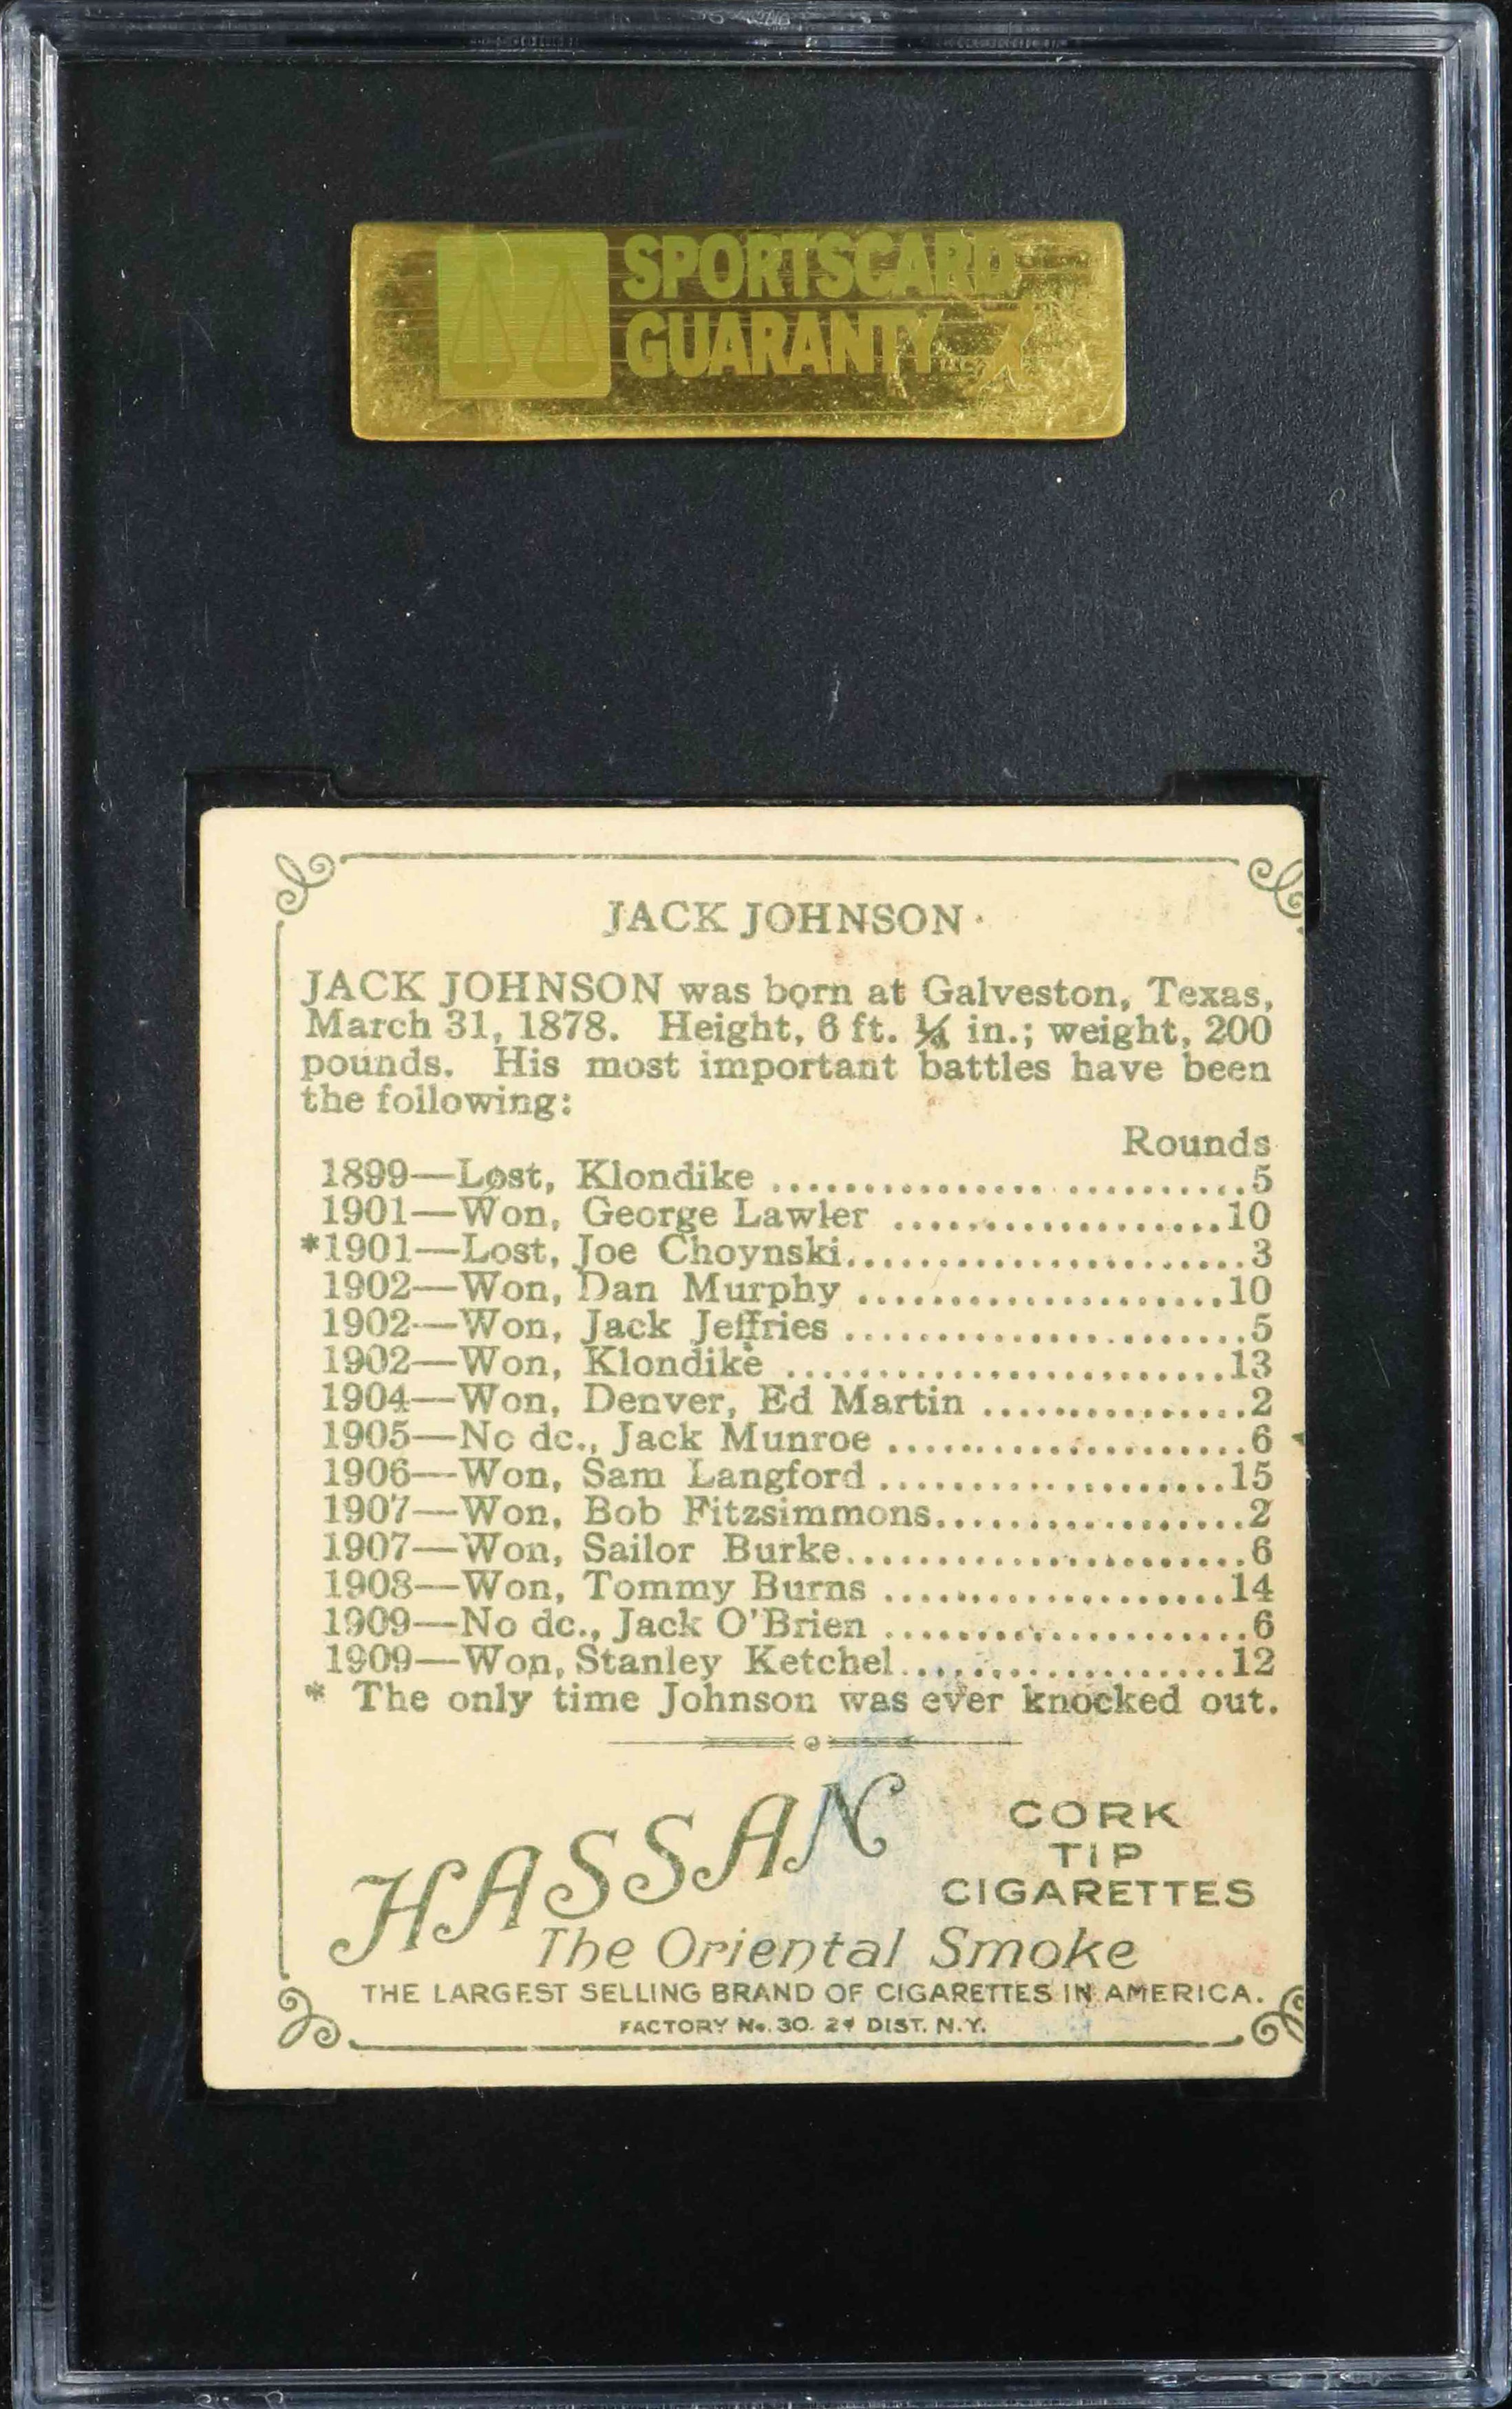 SPORTSCARD
GUARANTY
JACK JOHNSON
JACK JOHNSON was born at Galveston, Texas,
March 31, 1878. Height, 6 ft. ¼ in.; weight, 200
pounds. His most important battles have been
the following:
Rounds
1899—Lost, Klondike ..........................5
1901—Won, George Lawler ...................10
*1901—Lost, Joe Choynski......................3
1902—Won, Dan Murphy ....................10
1902—Won, Jack Jeffries ......................5
1902—Won, Klondike ........................13
1904—Won, Denver, Ed Martin ...............2
1905—No dc., Jack Munroe ....................6
1906—Won, Sam Langford ...................15
1907—Won, Bob Fitzsimmons.................2
1907—Won, Sailor Burke......................6
1908—Won, Tommy Burns ...................14
1909—No dc., Jack O'Brien ....................6
1909—Won, Stanley Ketchel..................12
* The only time Johnson was ever knocked out.
HASSAN
CORK
TIP
CIGARETTES
The Oriental Smoke
THE LARGEST SELLING BRAND OF CIGARETTES IN AMERICA.
FACTORY No. 30. 2d DIST. N.Y.